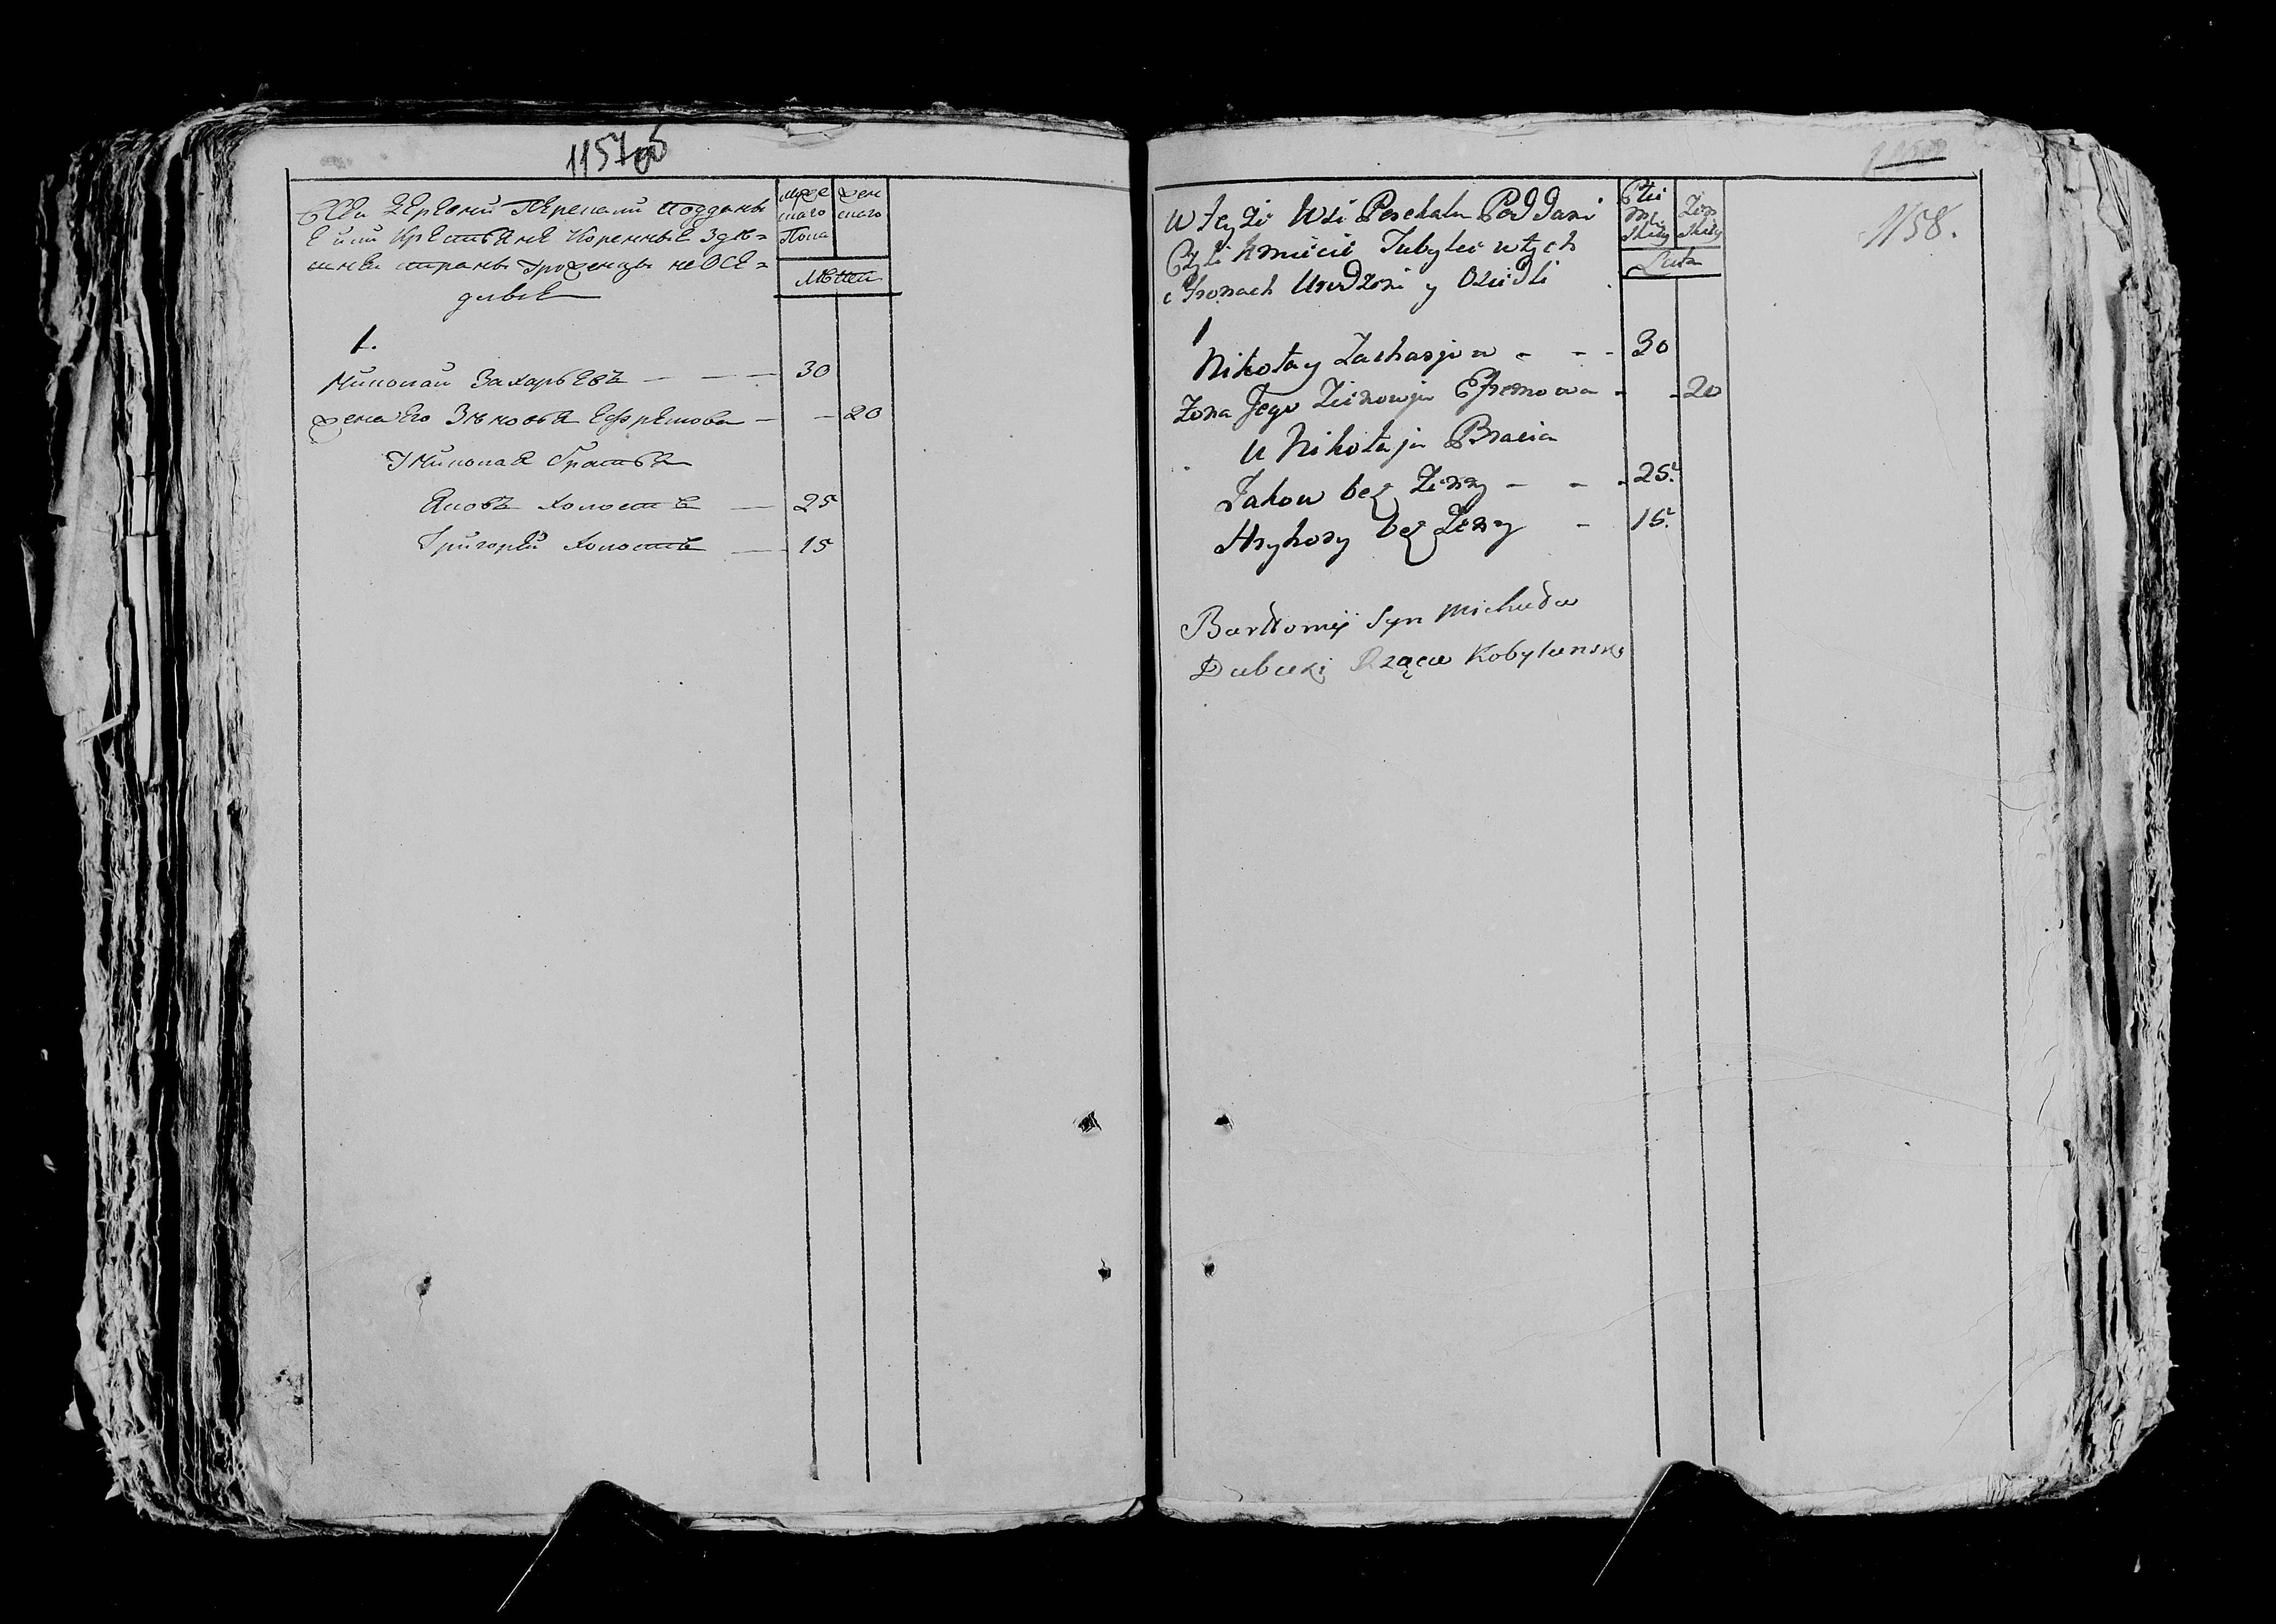 1157об
Сеи Деревни Перекали поддани
е или крестьяне коренные здеш=
шней страны уроженцы не осе=
длые
муже
скаго
Пола
жен
скаго
Летъ
1.
Николай Захарьевъ — — — 30
жена Его Зѣновья Ефремова — — 20
У Николая братья
Яковъ холостъ — 25
Григорѣй холостъ — 15
1158.
W teyże Wsi Perekalu Poddani
Czyli Kmiecie Tubylcy w tych
stronach Urodzeni y Osiedli
Płci
Mę
skiey
Żeń
skiey
Lata
1
Nikołay Zacharjew - - - 30
Zona Jego Zienowja Efremowa - - 20
U Nikołaja Bracia
Jakow bez Żony - - - 25.
Hryhory bez Żony - 15.
Bartłomij Syn Michała
Dubicki Rządca Kobylanski